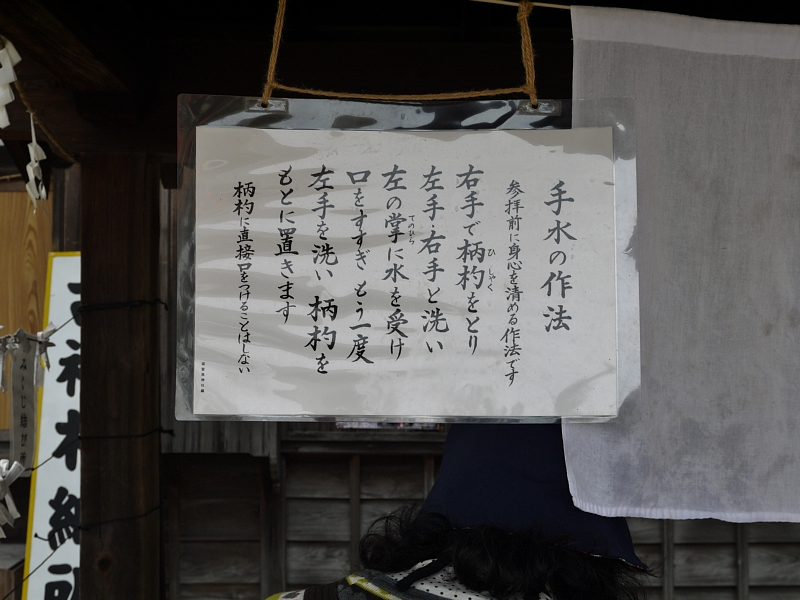 手水の作法
参拝前に身心を清める作法です
右手で柄杓をとり
ひしゃく
左手・右手と洗い
左の掌に水を受け
てのひら
口をすすぎ もう一度
左手を洗い 柄杓を
もとに置きます
柄杓に直接口をつけることはしない
古神札納所
みくじ結び所